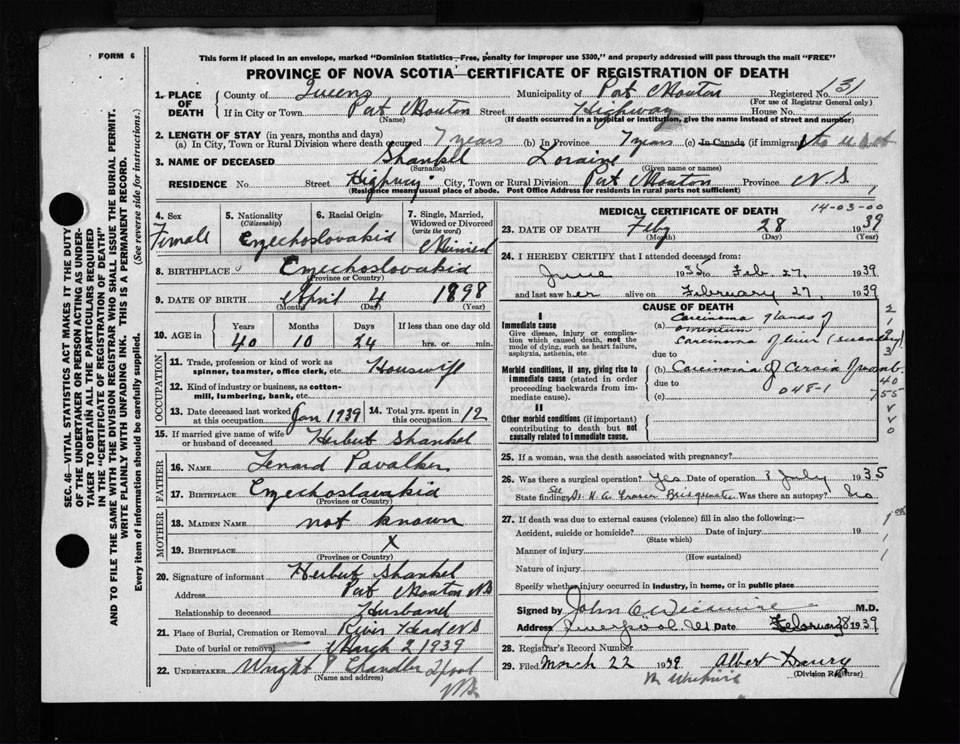 FORM 6
This form if placed in an envelope, marked "Dominion Statistics—Free, penalty for improper use $300," and properly addressed will pass through the mail "FREE"
PROVINCE OF NOVA SCOTIA—CERTIFICATE OF REGISTRATION OF DEATH
SEC. 46—VITAL STATISTICS ACT MAKES IT THE DUTY
OF THE UNDERTAKER OR PERSON ACTING AS UNDER-
TAKER TO OBTAIN ALL THE PARTICULARS REQUIRED
IN THE "CERTIFICATE OF REGISTRATION OF DEATH"
AND TO FILE THE SAME WITH THE DIVISION REGISTRAR WHO SHALL ISSUE THE BURIAL PERMIT.
WRITE PLAINLY WITH UNFADING INK. THIS IS A PERMANENT RECORD.
Every item of information should be carefully supplied. (See reverse side for instructions.)
1. PLACE OF DEATH
County of Queens Municipality of Port Mouton Registered No. 131
(For use of Registrar General only)
If in City or Town Port Mouton Street Highway House No.
(Name) (If death occurred in a hospital or institution, give the name instead of street and number)
2. LENGTH OF STAY (in years, months and days)
(a) In City, Town or Rural Division where death occurred 7 years (b) In Province 7 years (c) In Canada (if immigrant)
3. NAME OF DECEASED Shankel Loraine
(Surname) (Given name or names)
RESIDENCE No. Street Highway City, Town or Rural Division Port Mouton Province N.S
(Residence means usual place of abode. Post Office Address for residents in rural parts not sufficient)
4. Sex Female
5. Nationality (Citizenship) Czechoslovakia
6. Racial Origin
7. Single, Married, Widowed or Divorced (write the word) Married
8. BIRTHPLACE Czechoslovakia
(Province or Country)
9. DATE OF BIRTH April 4 1898
(Month) (Day) (Year)
10. AGE in Years Months Days If less than one day old
40 10 24 hrs. or min.
OCCUPATION
11. Trade, profession or kind of work as spinner, teamster, office clerk, etc. Housewife
12. Kind of industry or business, as cotton-mill, lumbering, bank, etc.
13. Date deceased last worked at this occupation Jan 1939
14. Total yrs. spent in this occupation 12
15. If married give name of wife or husband of deceased Herbert Shankel
FATHER
16. NAME Lenard Pavalker
17. BIRTHPLACE Czechoslovakia
(Province or Country)
MOTHER
18. MAIDEN NAME not known
19. BIRTHPLACE X
(Province or Country)
20. Signature of informant Herbert Shankel
Address Port Mouton NS
Relationship to deceased Husband
21. Place of Burial, Cremation or Removal River Head N S
Date of burial or removal March 2 1939
22. UNDERTAKER Wright P Chandler
(Name and address)
MEDICAL CERTIFICATE OF DEATH
14-03-00
23. DATE OF DEATH Feby 28 1939
(Month) (Day) (Year)
24. I HEREBY CERTIFY that I attended deceased from:
June 1935 to Feb. 27, 1939
and last saw her alive on February 27, 1939
CAUSE OF DEATH
I
Immediate cause
Give disease, injury or complication which caused death, not the mode of dying, such as heart failure, asphyxia, asthenia, etc
(a) Carcinoma glands of
omentum
Carcinoma of liver (secondary)
due to
Morbid conditions, if any, giving rise to immediate cause (stated in order proceeding backwards from immediate cause).
(b) Carcinoma of Cervix
due to 048-1
(c)
II
Other morbid conditions (if important) contributing to death but not causally related to immediate cause.
25. If a woman, was the death associated with pregnancy?
26. Was there a surgical operation? Yes Date of operation July 1935
State findings See Dr. Bridgewater Was there an autopsy? No
27. If death was due to external causes (violence) fill in also the following:—
Accident, suicide or homicide? Date of injury 19
(State which)
Manner of injury
(How sustained)
Nature of injury
Specify whether injury occurred in industry, in home, or in public place
Signed by John M.D.
Address Liverpool Date February 28 1939
28. Registrar's Record Number
29. Filed March 22 1939 Albert
(Division Registrar)